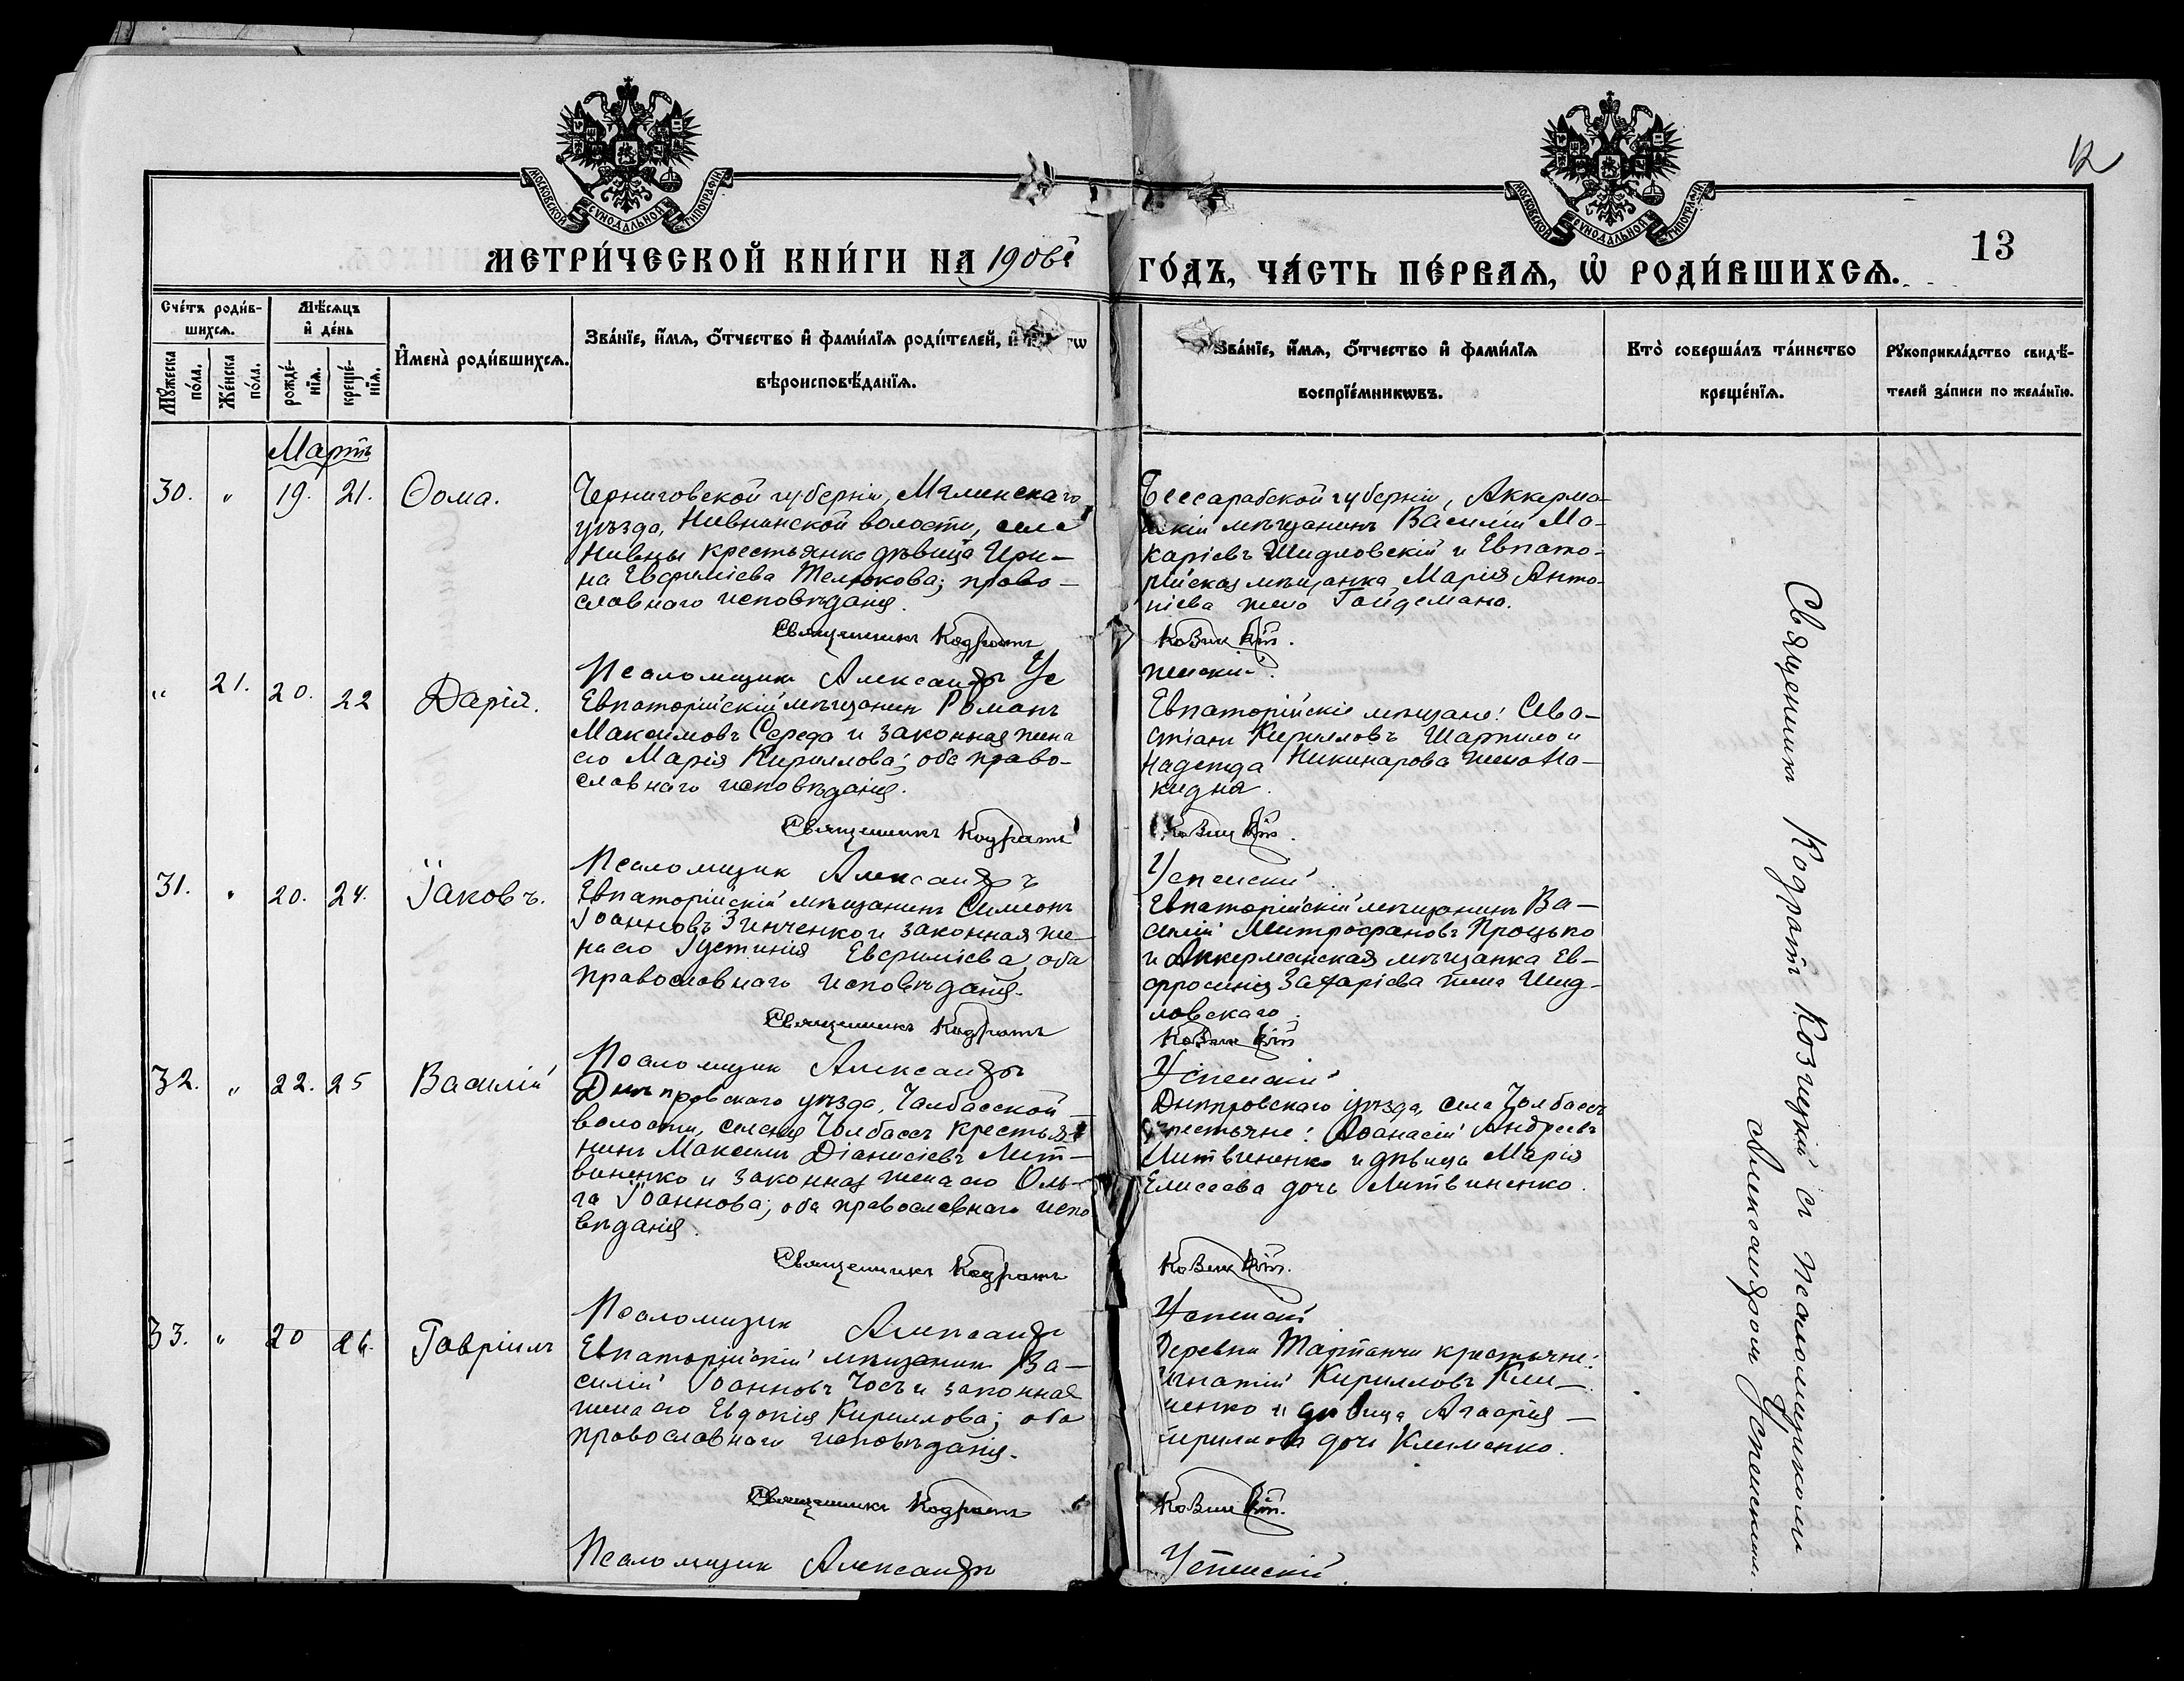 12
МОСКОВСКОЙ СѴНОДАЛЬНОЙ ТИПОГРАФІИ
МОСКОВСКОЙ СѴНОДАЛЬНОЙ ТИПОГРАФІИ
13
МЕТРИ́ЧЕСКОЙ КНИ́ГИ НА 1906й ГО́ДЪ, ЧА́СТЬ ПЕ́РВАЯ, Ѡ РОДИ́ВШИХСЯ.
Сче́тъ роди́в-
шихся.
Мꙋ́жеска по́ла.
Же́нска по́ла.
Мѣ́сяцъ
и де́нь
рожде́-
нїя.
креще́-
нїя.
Имена̀ роди́вшихся.
Зва́нїе, и́мя, о́тчество и фами́лїя роди́телей, и
вѣроисповѣ́данїя.
Зва́нїе, и́мя, о́тчество и фами́лїя
воспрїе́мникѡвъ.
Кто̀ соверша́лъ та́инство
креще́нїя.
Рꙋкоприкла́дство свидѣ́-
телей за́писи по жела́нїю.
Мартъ
30. " 19. 21. Ѳома.
Черниговской губерніи, Мглинскаго
уѣзда, Нивнинской волости, села
Нивны крестьянка дѣвица Ири-
на Евфиміева Телюкова; право-
славнаго исповѣданія.
Священникъ Кодратъ
Псаломщикъ Александръ Ус
Бессарабской губерніи, Аккерма-
нскій мѣщанинъ Василій Ма-
каріевъ Шидловскій и Евпато-
рійская мѣщанка Марія Анто-
ніева жена Гайдемана.
Козицкій.
пенскій.
" 21. 20. 22 Дарія.
Евпаторійскій мѣщанинъ Романъ
Максимовъ Середа и законная жена
его Марія Кириллова; оба право-
славнаго исповѣданія.
Священникъ Кодратъ
Псаломщикъ Александръ
Евпаторійскіе мѣщане: Сева-
стіанъ Кирилловъ Шарпило и
Надежда Никинарова жена Ма-
кидна.
Козицкій.
Успенскій
31. " 20. 24. Іаковъ.
Евпаторійскій мѣщанинъ Симеонъ
Іоанновъ Зинченко и законная же
на его Іустинія Евфиміева, оба
православнаго исповѣданія.
Священникъ Кодратъ
Псаломщикъ Александръ
Евпаторійскій мѣщанинъ Ва-
силій Митрофановъ Процько
и Аккерманская мѣщанка Ев-
фросинія Захаріева жена Шид-
ловскаго.
Козицкій
Успенскій
32. " 22. 25 Василій
Днѣпровскаго уѣзда, Чалбасской
волости, селенія Чалбасъ крестья-
нинъ Максимъ Діанисіевъ Лит-
виненко и законная жена его Оль-
га Іоаннова; оба православнаго испо
вѣданія.
Священникъ Кодратъ
Псаломщикъ Александръ
Днѣпровскаго уѣзда, села Чалбасъ
крестьяне: Аѳанасій Андреевъ
Литвиненко и дѣвица Марія
Елисеева дочь Литвиненко.
Козицкій.
Успенскій
33. " 20 26. Гавріилъ
Евпаторійскій мѣщанинъ Ва-
силій Іоанновъ Чосъ и законная
жена его Евдокія Кириллова; оба
православнаго исповѣданія.
Священникъ Кодратъ
Псаломщикъ Александръ
Деревни Тартанчи крестьяне:
Игнатій Кирилловъ Кли-
менко и дѣвица Агафія
Кириллова дочь Клименко.
Козицкій.
Успенскій.
Священникъ Кодратъ Козицкій съ псаломщикомъ
Александромъ Успенскимъ.